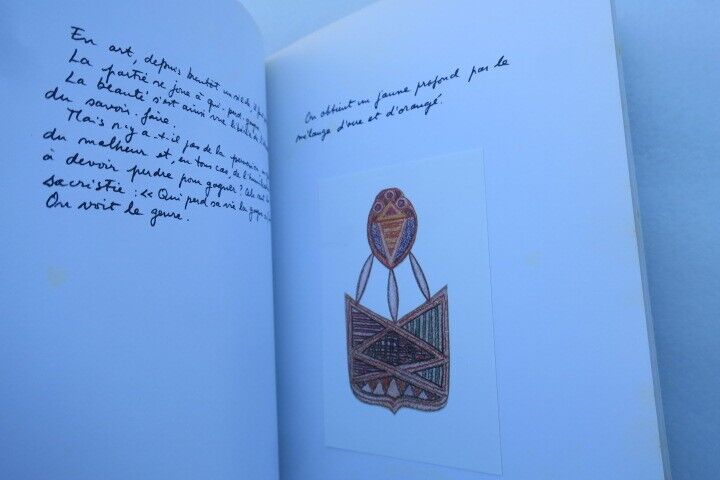 En art, depuis bientôt un siècle, il
La partie se joue à qui perd gagne
La beauté s'est ainsi vue libérée de
du savoir-faire.
Mais n'y a-t-il pas de la
du malheur et, en tous cas, de
à devoir perdre pour gagner ? Cela
sacristie : « Qui perd sa vie la gagne
On voit le genre.
On obtient un jaune profond par le
mélange d'ocre et d'orangé.